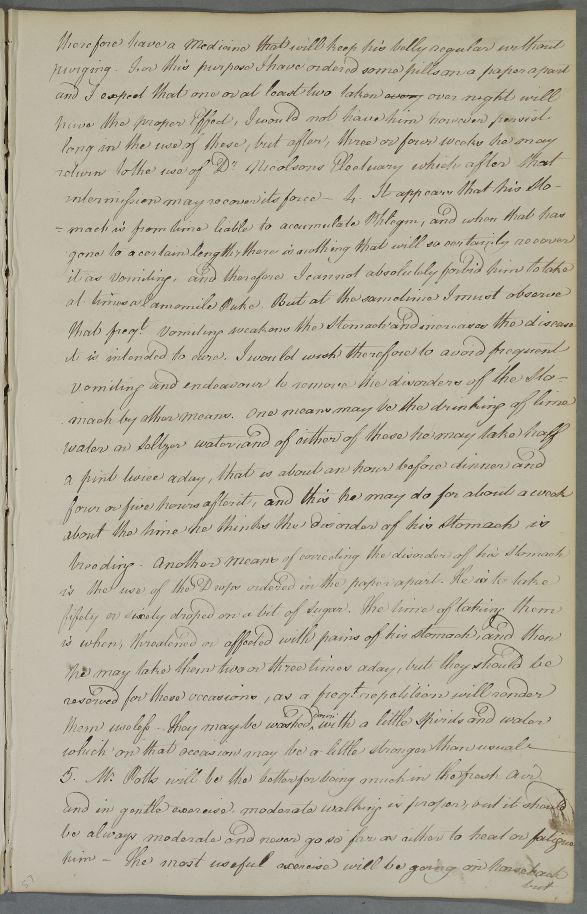 therefore have a Medicine that will keep his belly regular without
purging. For this purpose I have ordered some pills on a paper apart
and I expect that one or at least two taken every over night will
have the proper Effect, I would not have him however persist
long in the use of these, but after, three or four weeks he may
return to the use of Dr. Nicolsons Electuary which after that
intermission may recover its force – 4. It appears that his Sto-
=mach is from time liable to accumulate Phlegm, and when that has
gone to a certain length, there is nothing that will so certainly recover
it as vomiting, and therefore I cannot absolutely forbid him to take
at times a Camomile Puke. But at the same time I must observe
that freqt. vomiting weakens the Stomach and increases the disease
it is intended to cure. I would wish therefore to avoid frequent
vomiting and endeavour to remove the disorders of the Sto-
mach by other means. One means may be the drinking of lime
water or Seltzer water, and of either of these he may take half
a pint twice a day, that is about an hour before dinner and
four or five hours after it, and this he may do for about a week
about the time he thinks the disorder of his Stomach is
breeding. Another means of correcting the disorder of his Stomach
is the use of the Drops ordered in the paper apart. He is to take
fifety or sixety droped on a bit of sugar. The time of taking them
is when, threatened or affected with pains of his stomach, and then
he may take them two or three times a day, but they should be
reserved for these occasions, as a freqt. repetition will render
them useless. They may be washed down with a little Spirits and water
which on that occasion may be a little stronger than usual
5. Mr. Potts will be the better for being much in the fresh air
and in gentle exercise. moderate walking is proper, but it should
be always moderate and never go so far as either to heat or fatigue
him – The most useful exercise will be going on horseback
but
57